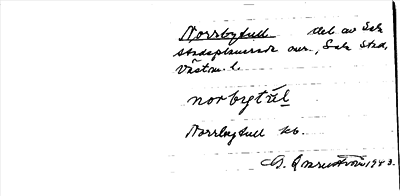 Norrbytull del av Sala
stadsplanerade omr., Sala stad,
Västm. l.
norbytúl
Norrbytull kb.
1943.